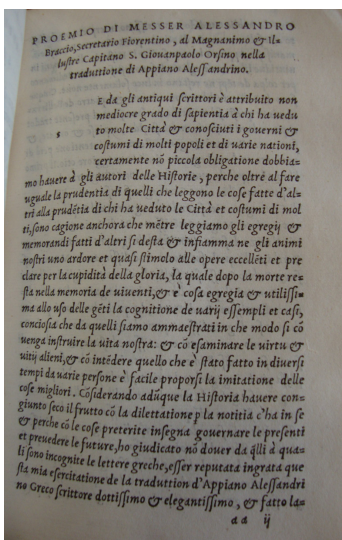 PROEMIO DI MESSER ALESSANDRO
Braccio, Secretario Fiorentino, al Magnanimo & Il-
lustre Capitano S. Giouanpaolo Orsino nella
traduttione di Appiano Aleſſandrino.
s
E da gli antiqui ſcrittori è attribuito non
mediocre grado di ſapientia à chi ha uedu
to molte Città & conoſciuti i gouerni &
coſtumi di molti popoli et di uarie nationi,
certamente nó piccola obligatione dobbia-
mo hauere à gli autori delle Hiſtorie, perche oltre al fare
uguale la prudentia di quelli che leggono le coſe fatte d'al-
tri alla prudétia di chi ha ueduto le Città et coſtumi di mol
ti, ſono cagione anchora che métre leggiamo gli egregij &
memorandi fatti d'altri ſi deſta & infiamma ne gli animi
noſtri uno ardore et quaſi ſtimolo alle opere eccelléti et pre
clare per la cupidità della gloria, la quale dopo la morte re-
ſta nella memoria de uiuenti, & è coſa egregia & utiliſſi-
ma allo uſo delle géti la cognitione de uarij eſſempli et caſi,
concioſia che da quelli ſiamo ammaeſtrati in che modo ſi có
uenga inſtruire la uita noſtra: & có eſaminare le uirtu &
uitij alieni, & có intédere quello che è ſtato fatto in diuerſi
tempi da uarie perſone è facile proporſi la imitatione delle
coſe migliori. Cóſiderando adúque la Hiſtoria hauere con-
giunto ſeco il frutto có la dilettatione p la notitia c'ha in ſe
& perche có le coſe preterite inſegna gouernare le preſenti
et preuedere le future, ho giudicato nó douer da q̃lli à qua-
li ſono incognite le lettere greche, eſſer reputata ingrata que
ſta mia eſercitatione de la traduttion d'Appiano Aleſſandri
no Greco ſcrittore dottiſſimo & elegantiſſimo, & fatto la-
aa ij